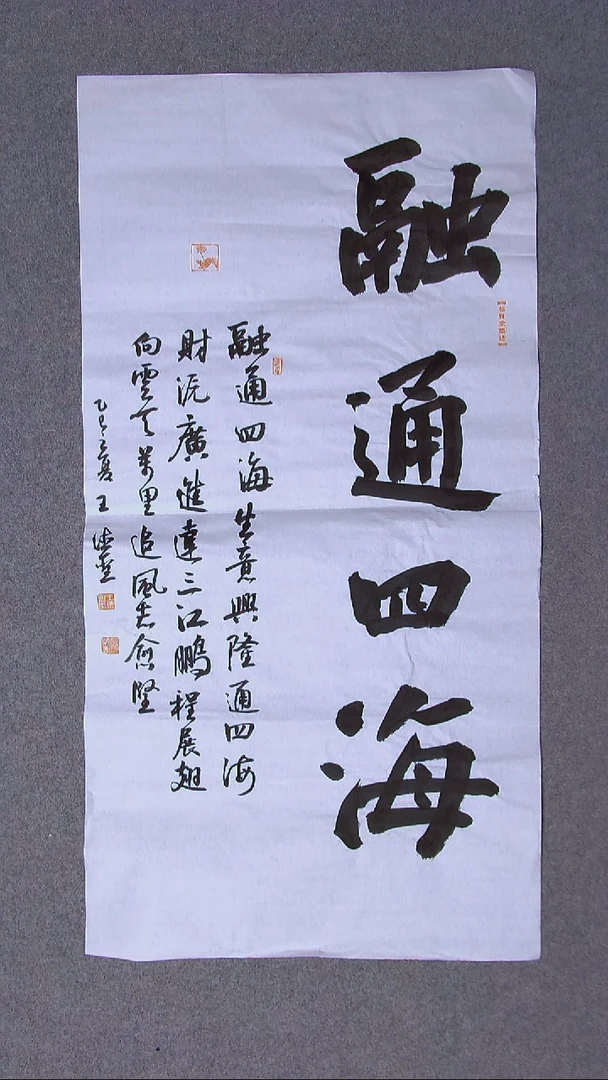 融通四海
融通四海生意興隆通四海
財源廣進達三江鵬程展翅
向雲天萬里追風志愈堅
乙巳之夏王